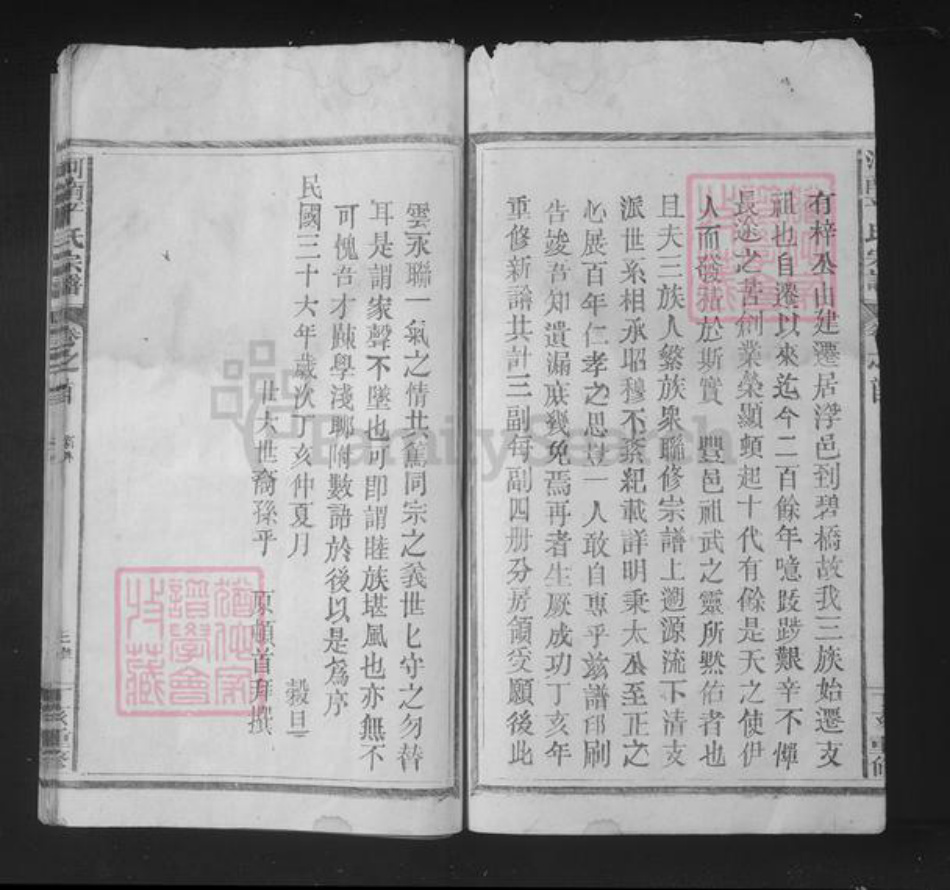 有梓公由建遷居浮邑到碧橋故我三族始遷支
祖也自遷以來迄今二百餘年噫跋踄艱辛不憚
長途之苦創業榮顯頓起十代有餘是天之使伊
人而發菘於斯實豐邑祖武之靈所默佑者也
且夫三族人繁族衆聯修宗譜上遡源流下清支
派世系相承昭穆不紊紀載詳明秉太公至正之
心展百年仁孝之思豈一人敢自專乎玆譜印刷
告竣吾知遺漏庶幾免焉再者生厥成功丁亥年
重修新譜共計三副每副四册分房領受願後此
雲永聯一氣之情共篤同宗之義世匕守之勿替
耳是謂家聲不墜也可即謂睦族堪風也亦無不
可愧吾才疎學淺聊附數語於後以是爲序
民國三十六年歲次丁亥仲夏月 穀旦
廿大世裔孫乎 原頓首拜撰
河南平氏宗譜 卷之首
重修
猶他家譜學會收藏
FamilySearch